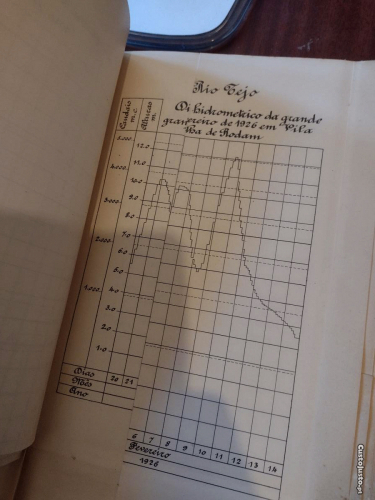 Rio Tejo
hidrometrico da grande
de 1926 em Vila
de Rodam
Caudais
m.c.
Alturas
m.
5.000
12.0
11.0
4.000
10.0
9.0
3.000
8.0
7.0
2.000
6.0
5.0
4.0
1.000
3.0
2.0
1.0
Dias 20 21
Mês
Ano
6 7 8 9 10 11 12 13 14
Fevereiro
1926
CustoJusto.pt